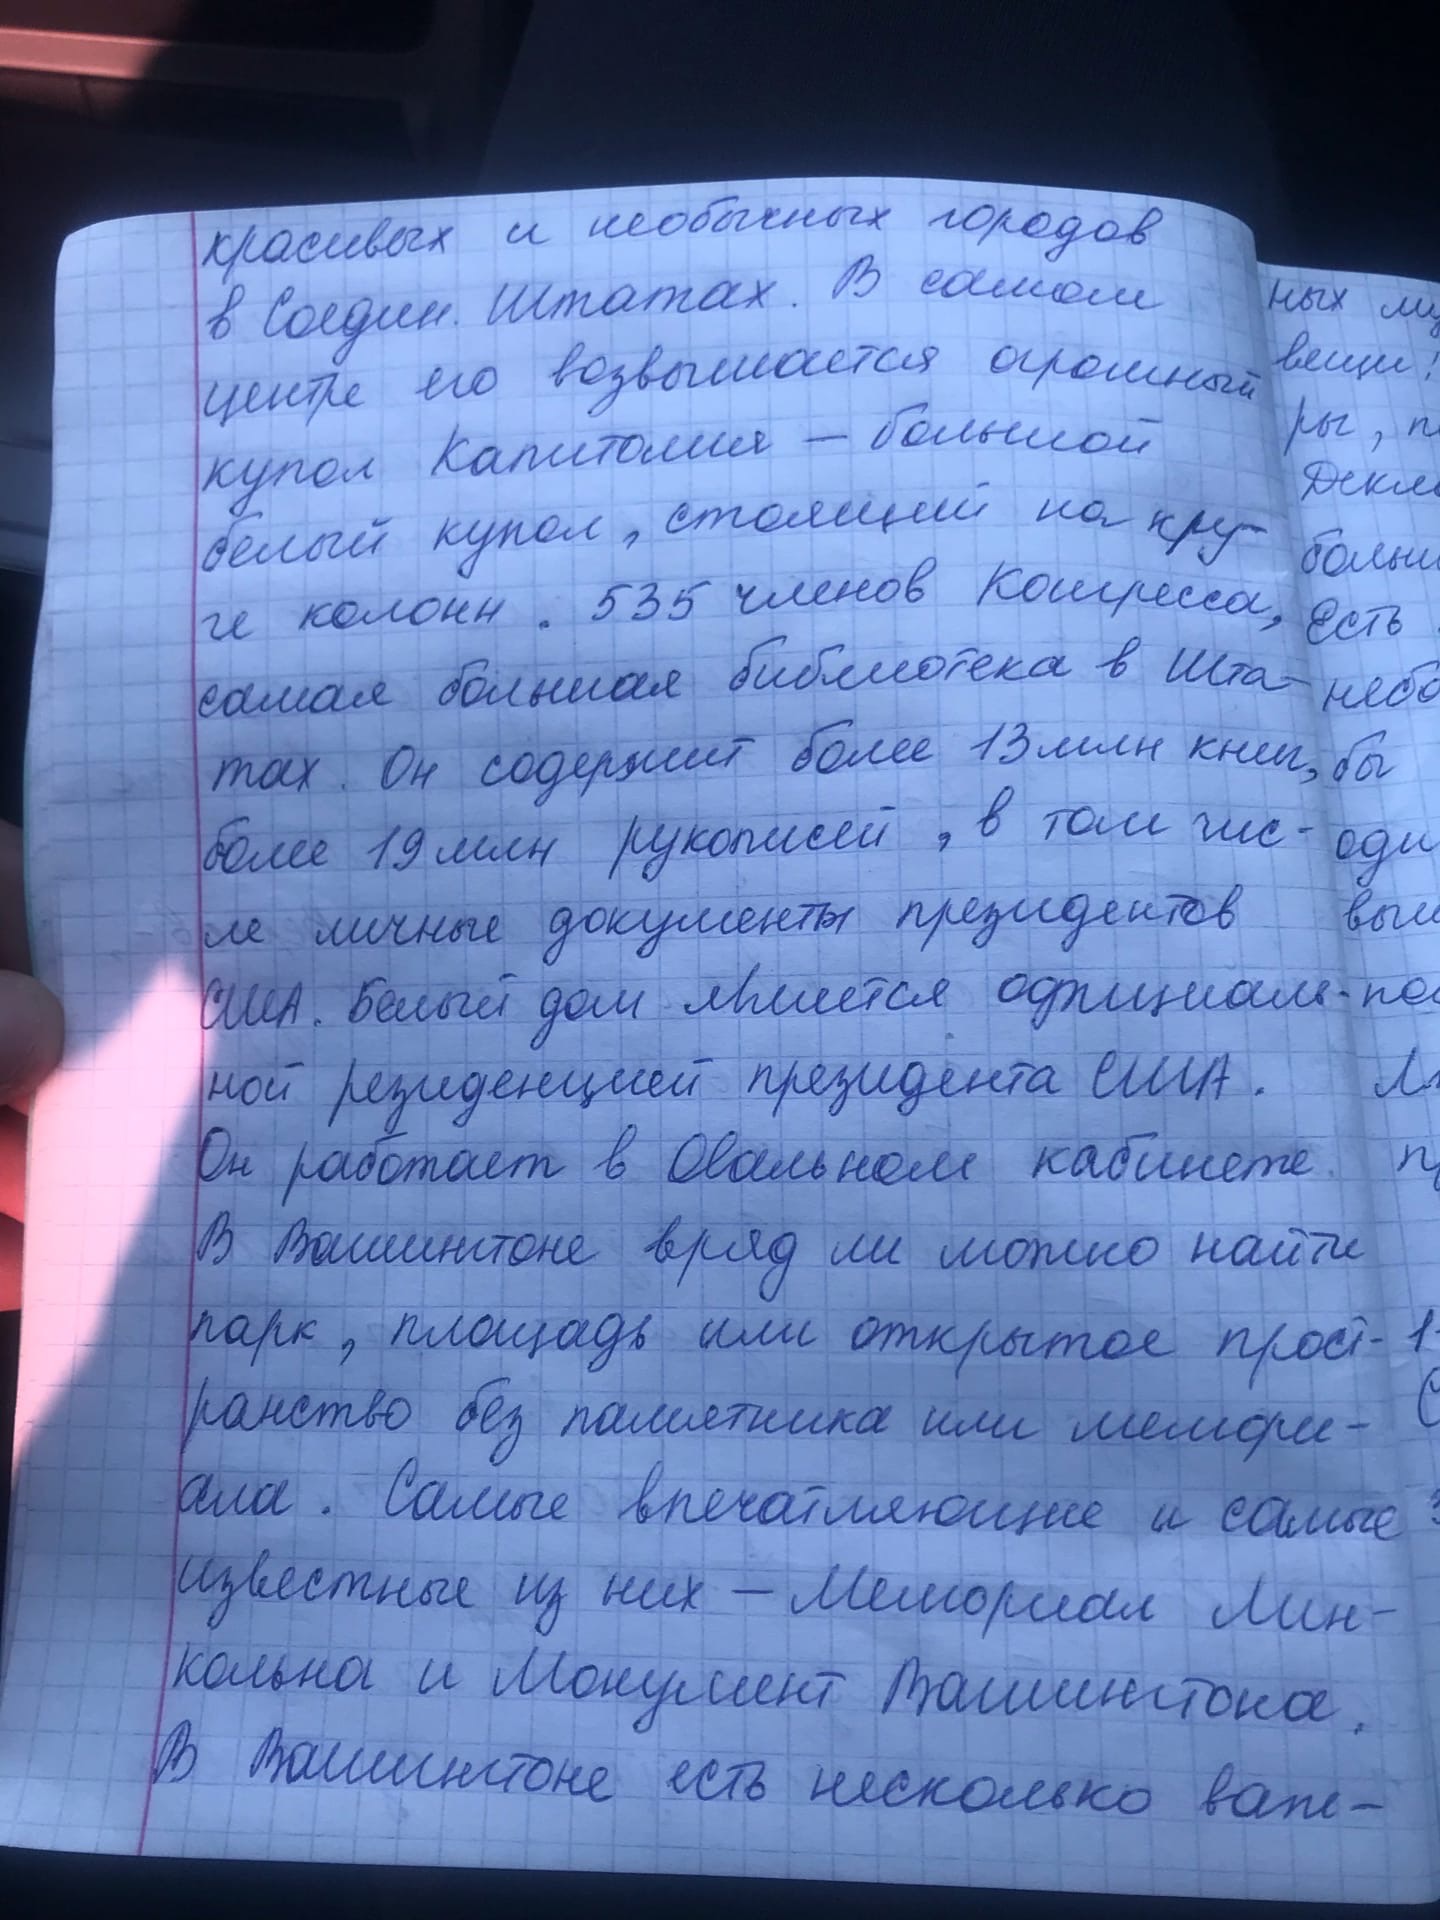 красивых и необычных городов
в Соедин. Штатах. В самом
центре его возвышается огромный
купол Капитолия – большой
белый купол, стоящий на кру-
ге колонн. 535 членов Конгресса,
самая большая библиотека в Шта-
тах. Он содержит более 13 млн книг,
более 19 млн рукописей, в том чис-
ле личные документы президентов
США. Белый дом является официаль-
ной резиденцией президента США.
Он работает в Овальном кабинете.
В Вашингтоне вряд ли можно найти
парк, площадь или открытое прост-
ранство без памятника или мемори-
ала. Самые впечатляющие и самые
известные из них – Мемориал Лин-
кольна и Монумент Вашингтона.
В Вашингтоне есть несколько важ-
ных
вещи
ры,
Есть
бы